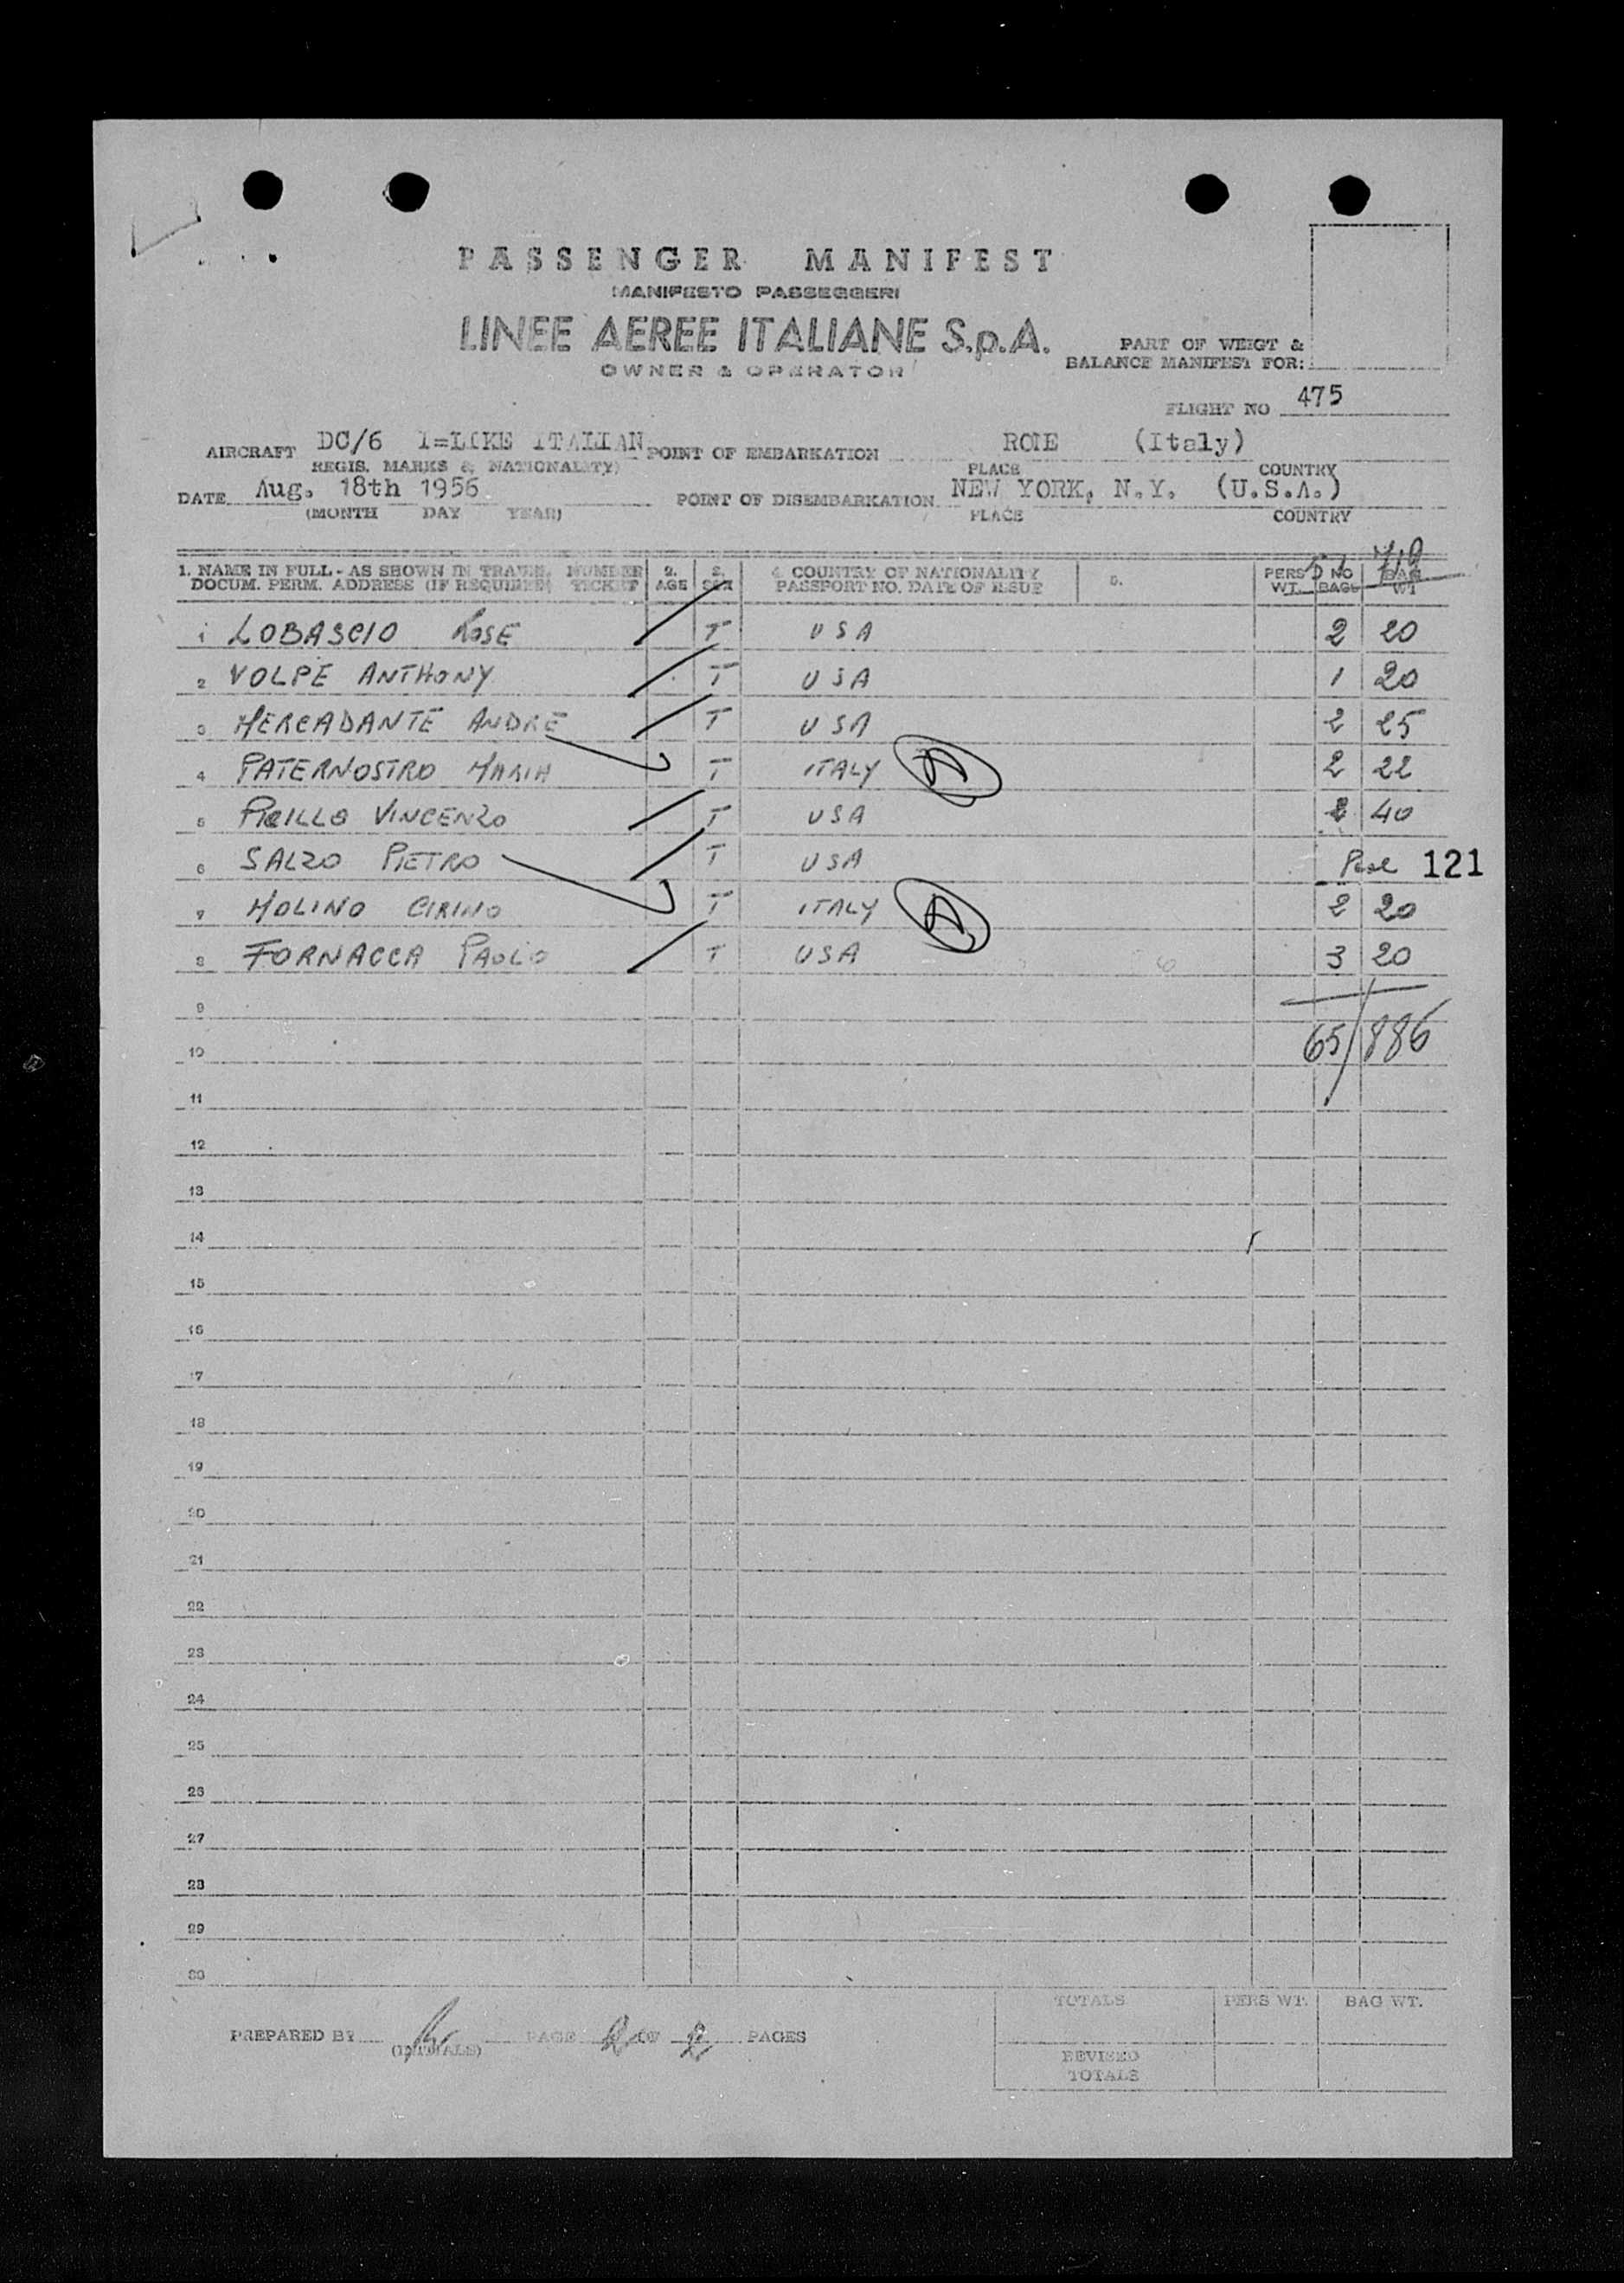 PASSENGER MANIFEST
MANIFESTO PASSEGGERI
LINEE AEREE ITALIANE S.p.A.
OWNER & OPERATOR
PART OF WEIGT &
BALANCE MANIFEST FOR:
FLIGHT NO 475
AIRCRAFT DC/6 I=LIKE ITALIAN POINT OF EMBARKATION ROME (Italy)
REGIS. MARKS & NATIONALITY) PLACE COUNTRY
DATE Aug. 18th 1956 POINT OF DISEMBARKATION NEW YORK, N.Y. (U.S.A.)
(MONTH DAY YEAR) PLACE COUNTRY
1. NAME IN FULL - AS SHOWN IN TRAVEL NUMBER 2. 3. 4. COUNTRY OF NATIONALITY 5. PERS NO BAG
DOCUM. PERM. ADDRESS (IF REQUIRED) TICKET AGE SEX PASSPORT NO. DATE OF ISSUE WT. BAGS WT
1 LOBASCIO ROSE T USA 2 20
2 VOLPE ANTHONY T USA 1 20
3 MERCADANTE ANDRE T USA 2 25
4 PATERNOSTRO MARIA T ITALY 2 22
5 PIRILLO VINCENZO T USA 2 40
6 SALZO PIETRO T USA Pool 121
7 MOLINO CIRINO T ITALY 2 20
8 FORNACCA PAOLO T USA 3 20
9
65/886
10
11
12
13
14
15
16
17
18
19
20
21
22
23
24
25
26
27
28
29
30
TOTALS PERS WT. BAG WT.
PREPARED BY PAGE 2 OF 2 PAGES
(INITIALS)
REVISED
TOTALS